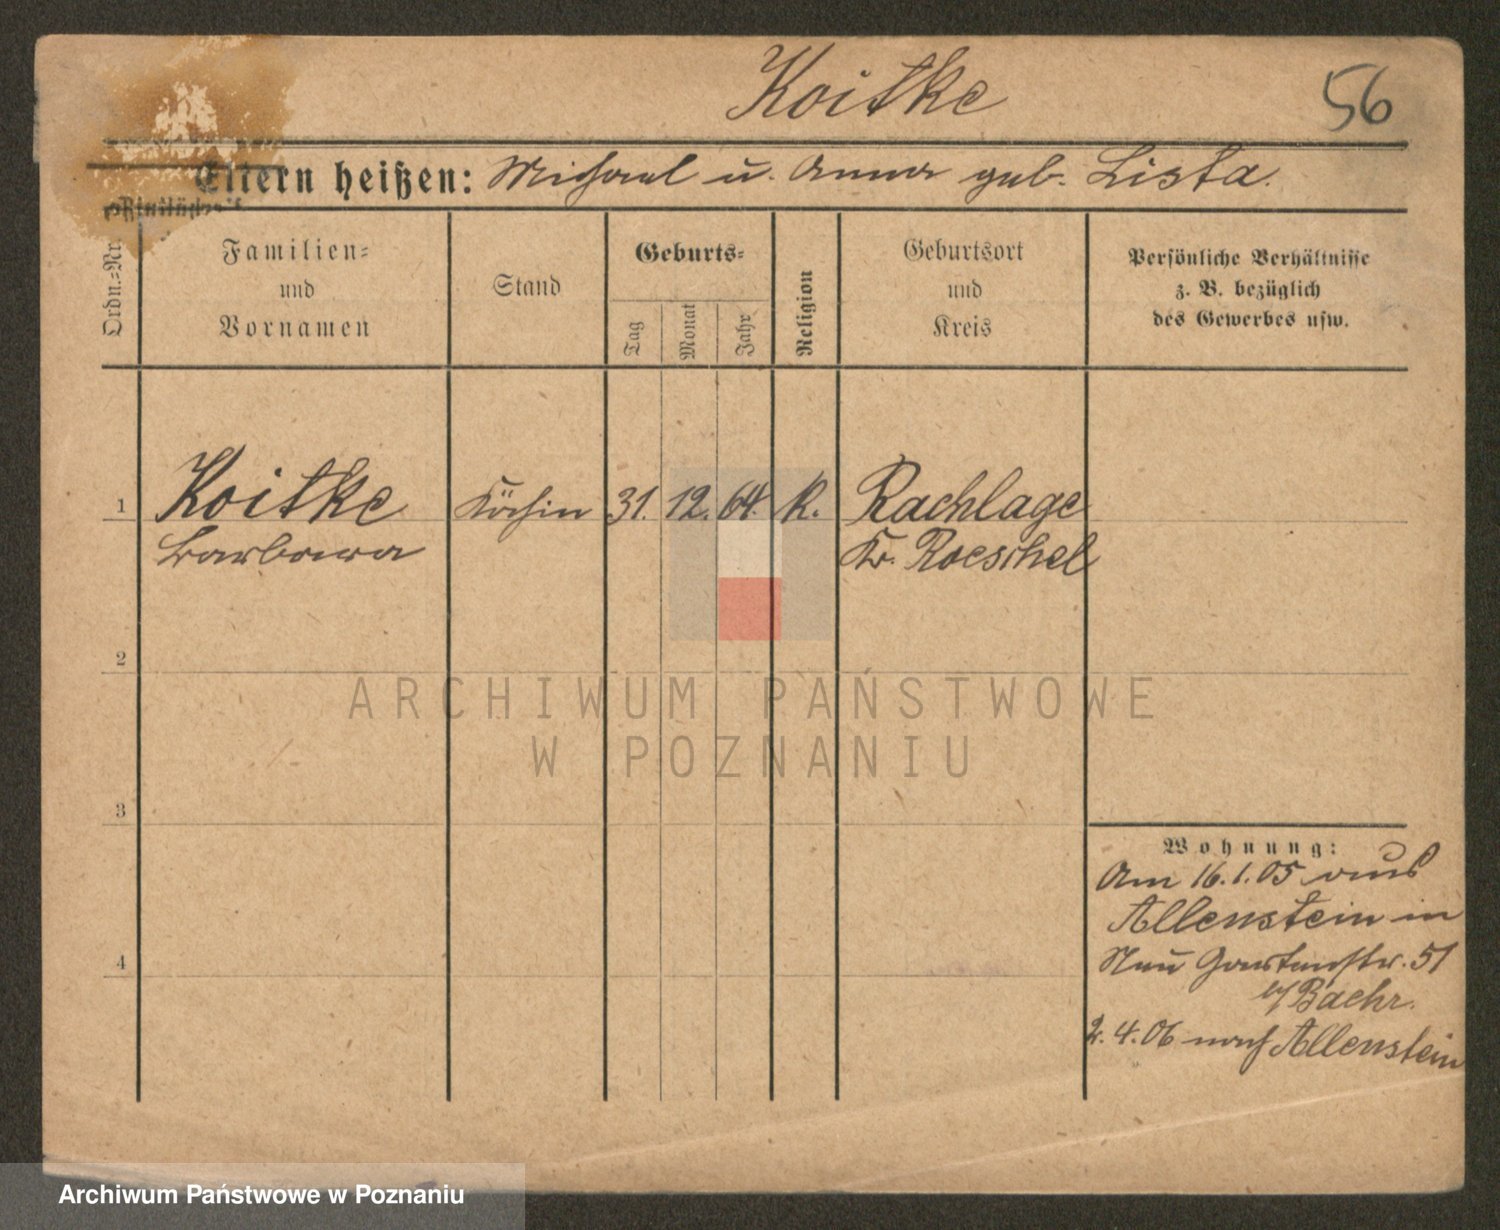 Koitke
56
Eltern heißen: Michael u. Anna geb. Lista.
Ordn.=Nr.
Familien=
und
Vornamen
Stand
Geburts=
Tag
Monat
Jahr
Religion
Geburtsort
und
Kreis
Persönliche Verhältnisse
z. B. bezüglich
des Gewerbes usw.
1
Koitke
Barbara
Köchin
31.
12.
64.
k.
Rachlage
Kr. Roeschel
2
3
4
Wohnung:
Am 16.1.05 aus
Allenstein in
Neu Gartenstr. 51
b/ Baehr.
2.4.06 nach Allenstein
ARCHIWUM PAŃSTWOWE
W POZNANIU
Archiwum Państwowe w Poznaniu